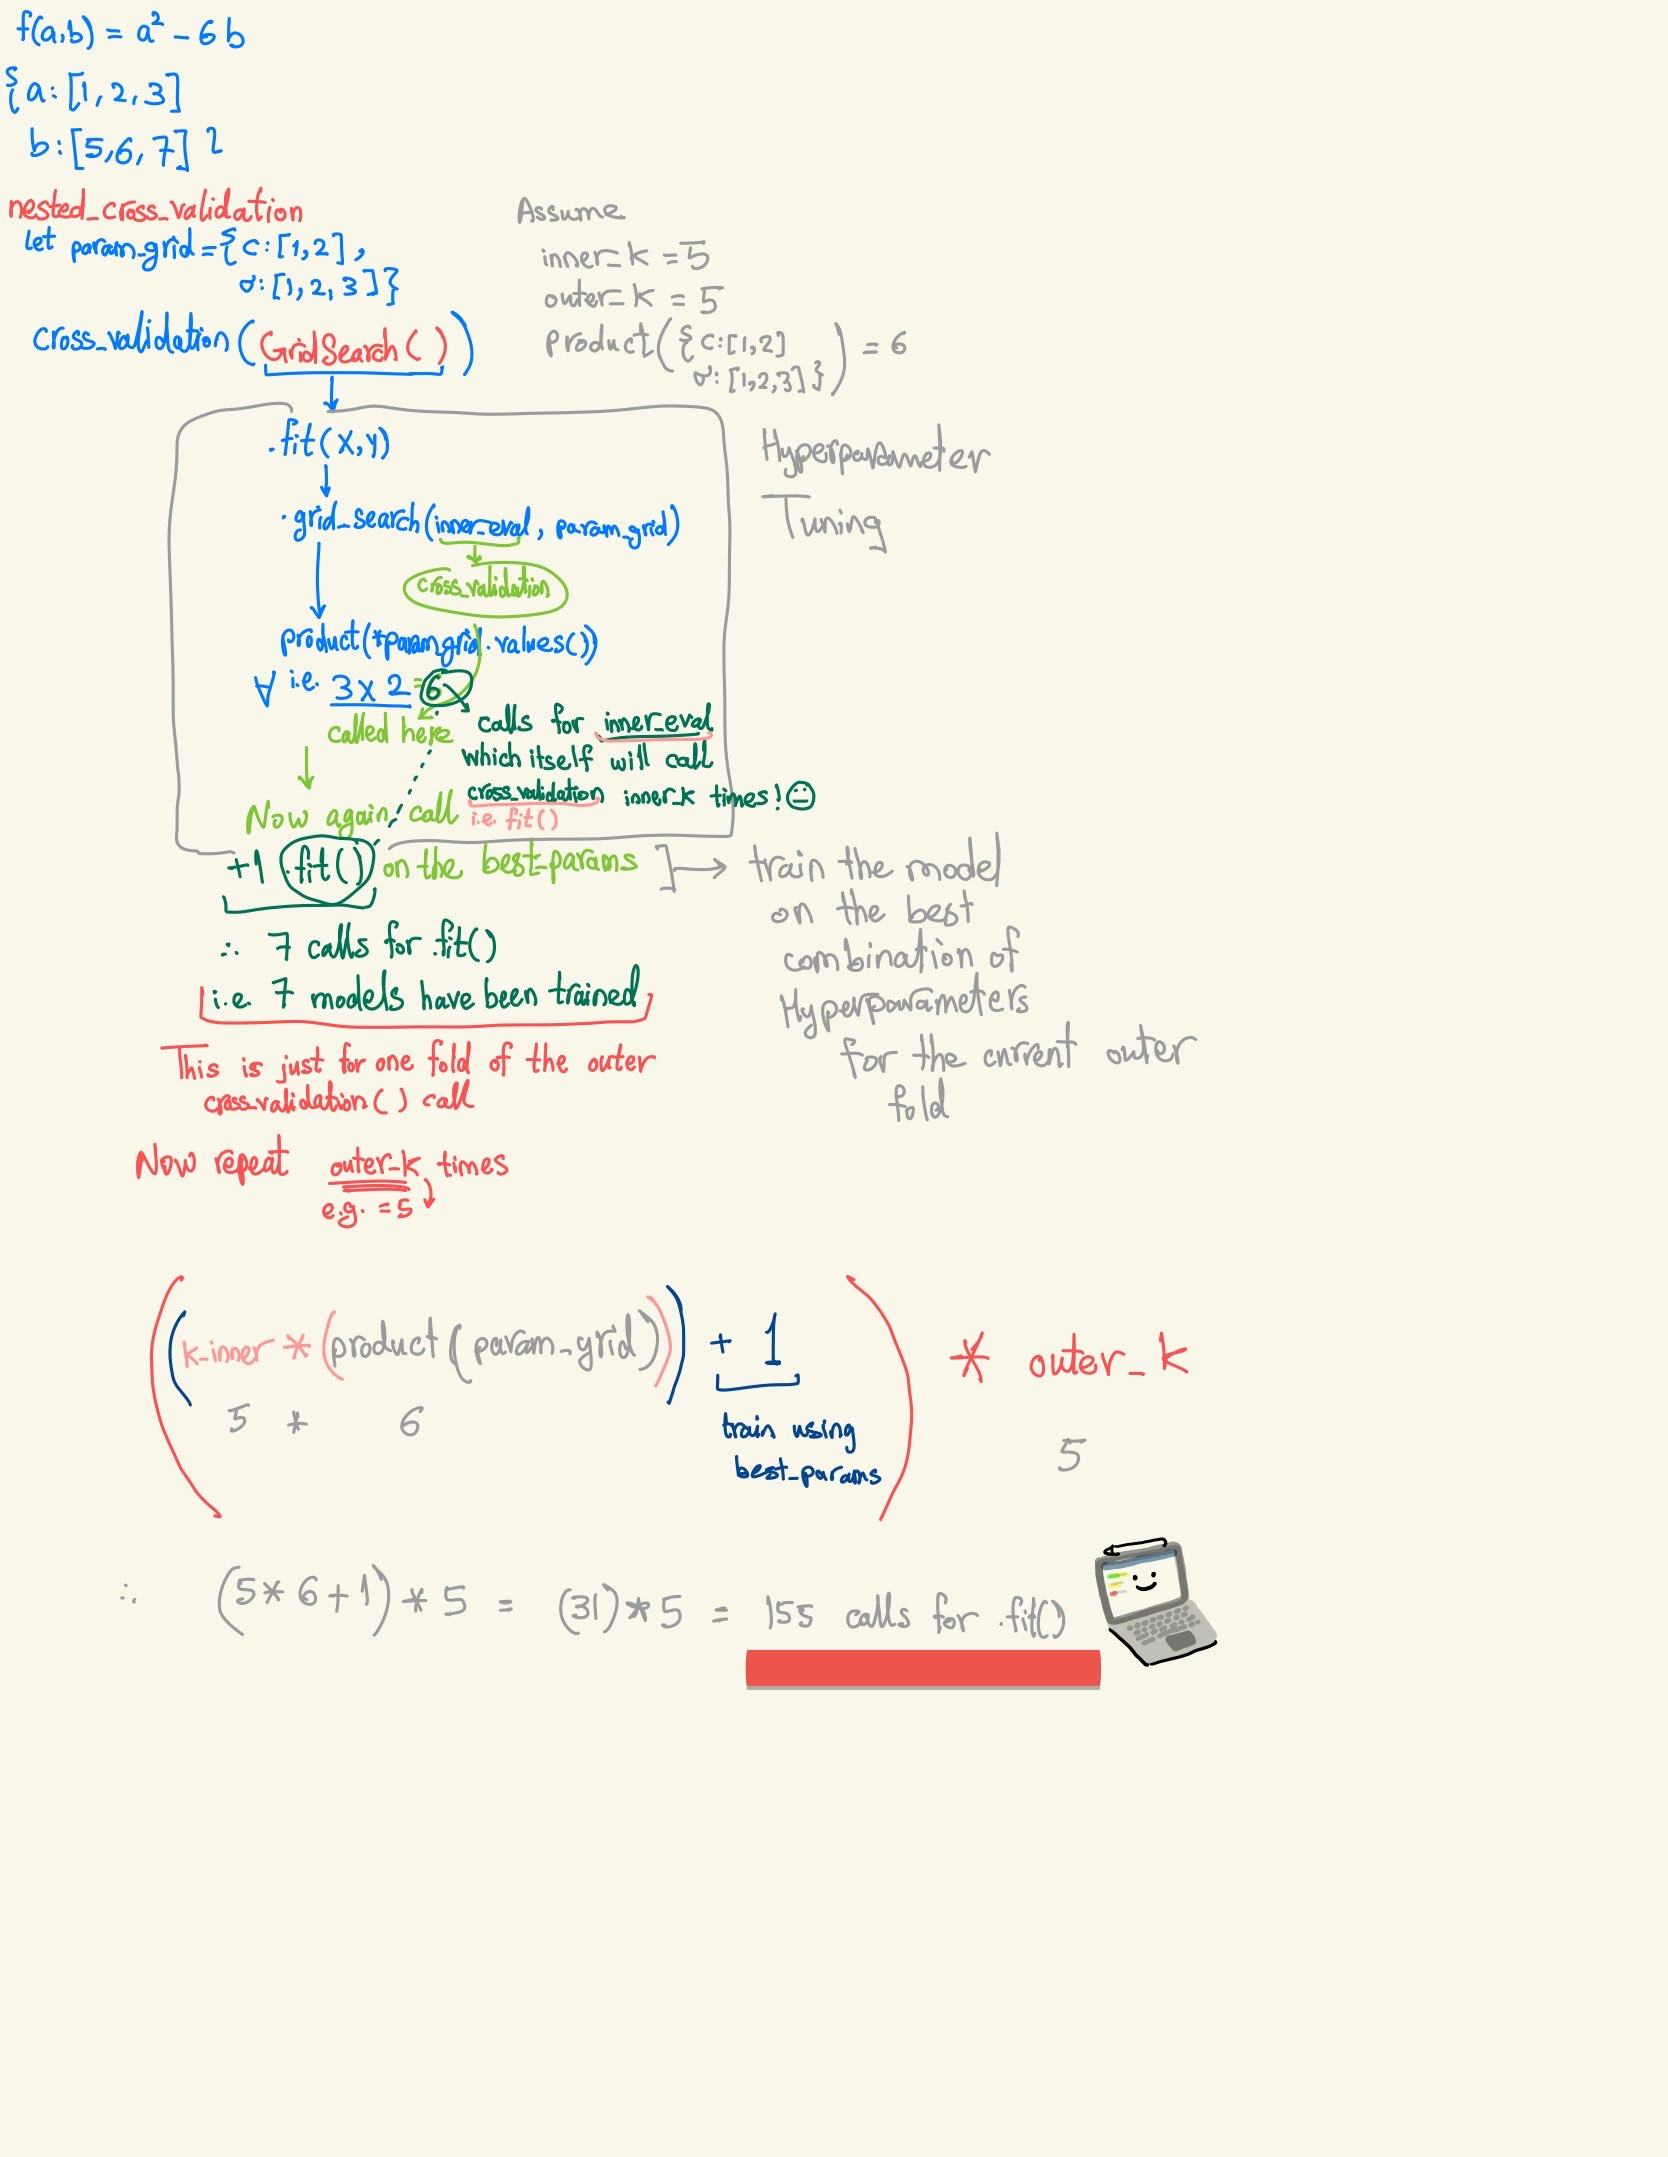 f(a,b) = a² - 6b
{a:[1,2,3]
b:[5,6,7]}
nested_cross_validation
let param_grid={c:[1,2],
σ:[1,2,3]}
cross_validation(GridSearch())
Assume
inner_k = 5
outer_k = 5
product({c:[1,2]
σ:[1,2,3]}) = 6
.fit(X,y)
.grid_search(inner_eval, param_grid)
cross_validation
product(*param_grid.values())
∀ i.e. 3 x 2 = 6
called here
calls for inner_eval
which itself will call
cross_validation inner_k times!
i.e. fit()
Now again call
+1 .fit() on the best_params
Hyperparameter
Tuning
train the model
on the best
combination of
Hyperparameters
for the current outer
fold
∴ 7 calls for .fit()
i.e. 7 models have been trained
This is just for one fold of the outer
cross_validation() call
Now repeat outer_k times
e.g. = 5
((k_inner * (product(param_grid))) + 1) * outer_k
5 * 6
5
train using
best_params
∴ (5*6+1)*5 = (31)*5 = 155 calls for .fit()